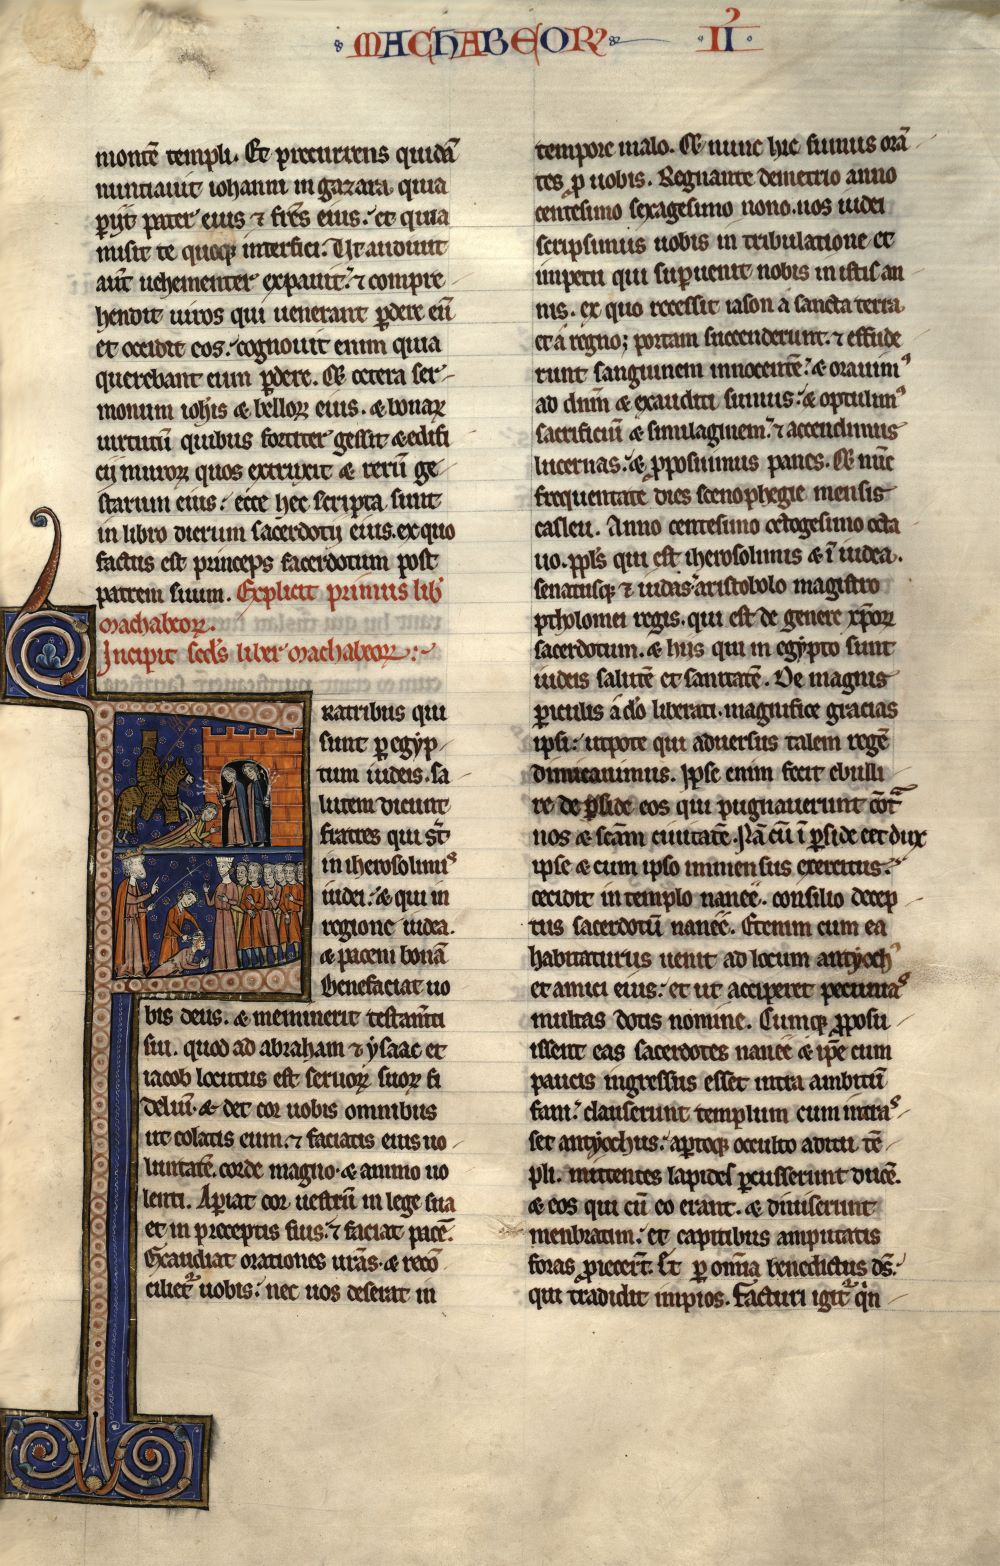 MACHABEOR II
montē templi. Et precurrens quidā
nuntiauit iohanni in gazara. quia
ꝑijt pater eius ⁊ fr̄es eius. et quia
misit te quoqꝫ interfici. Ut audiuit
aūt uehementer expauit. ⁊ compre
hendit uiros qui uenerant ꝑdere eū
et occidit eos. cognouit enim quia
querebant eum ꝑdere. Et cetera ser
monum ioh̄is & belloꝝ eius. & bonaꝝ
uirtutū quibus fortiter gessit & edifi
cij muroꝝ quos extruxit & rerū ge
starum eius. ecce hec scripta sunt
in libro dierum sacerdotij eius. ex quo
factus est princeps sacerdotum post
patrem suum. Explicit primus lib̄
machabeoꝝ.
Incipit scd̄s liber machabeoꝝ.
RATRIBUS qui
sunt ꝑ egyp
tum iudeis. sa
lutem dicunt
fratres qui st̄
in iherosolimis
iudei. & qui in
regione iudea.
& pacem bonā
Benefaciat uo
bis deus. & meminerit testam̄ti
sui. quod ad abraham ⁊ ysaac et
iacob locutus est seruoꝝ suoꝝ fi
deliū. & det cor uobis omnibus
ut colatis eum. ⁊ faciatis eius uo
luntatē. corde magno & animo uo
lenti. Aꝑiat cor uestrū in lege sua
et in preceptis suis. ⁊ faciat pacē.
Exaudiat orationes ur̄as. & recō
cilietᷣ uobis. nec uos deserat in
tempore malo. Et nunc hic sumus orā
tes ꝓ uobis. Regnante demetrio anno
centesimo sexagesimo nono. nos iudei
scripsimus uobis in tribulatione et
impetu qui suꝑuenit nobis in istis an
nis. ex quo recessit iason a sancta terra
et a regno; portam succenderunt. ⁊ effude
runt sanguinem innocentē. & orauimꝰ
ad dn̄m & exauditi sumus. & optulimꝰ
sacrificiū & similaginem. ⁊ accendimus
lucernas. & ꝓposuimus panes. Et nūc
frequentate dies scenophegie mensis
casleu. Anno centesimo octogesimo octa
uo. ppl̄s qui est iherosolimis & ī iudea.
senatusqꝫ ⁊ iudas aristobolo magistro
ptholomei regis. qui est de genere xp̄oꝝ
sacerdotum. & hiis qui in egypto sunt
iudeis salutē et sanitatē. De magnis
ꝑiculis a dō liberati. magnifice gracias
ipsi. utpote qui aduersus talem regē
dimicauimus. Ipse enim fecit ebulli
re de ꝑside eos qui pugnauerunt cōt
nos & sc̄am ciuitatē. Nā cū ī ꝑside eēt dux
ipse & cum ipso immensus exercitus.
cecidit in templo nanee. consilio decep
tus sacerdotū nanee. Etenim cum ea
habitaturus uenit ad locum antyoch
et amici eius. et ut acciperet pecunias
multas dotis nomine. Cumqꝫ ꝓposu
issent eas sacerdotes nanee & ip̄e cum
paucis ingressus esset intra ambitū
fani. clauserunt templum cum intras
set antyochus. aꝑtoqꝫ occulto aditu tē
pli. mittentes lapides ꝑcusserunt ducē.
& eos qui cū eo erant. & diuiserunt
menbratim. et capitibus amputatis
foras proiecer̄t. Et ꝑ omīa benedictus ds̄.
qui tradidit impios. Facturi igitᷣ q̄n